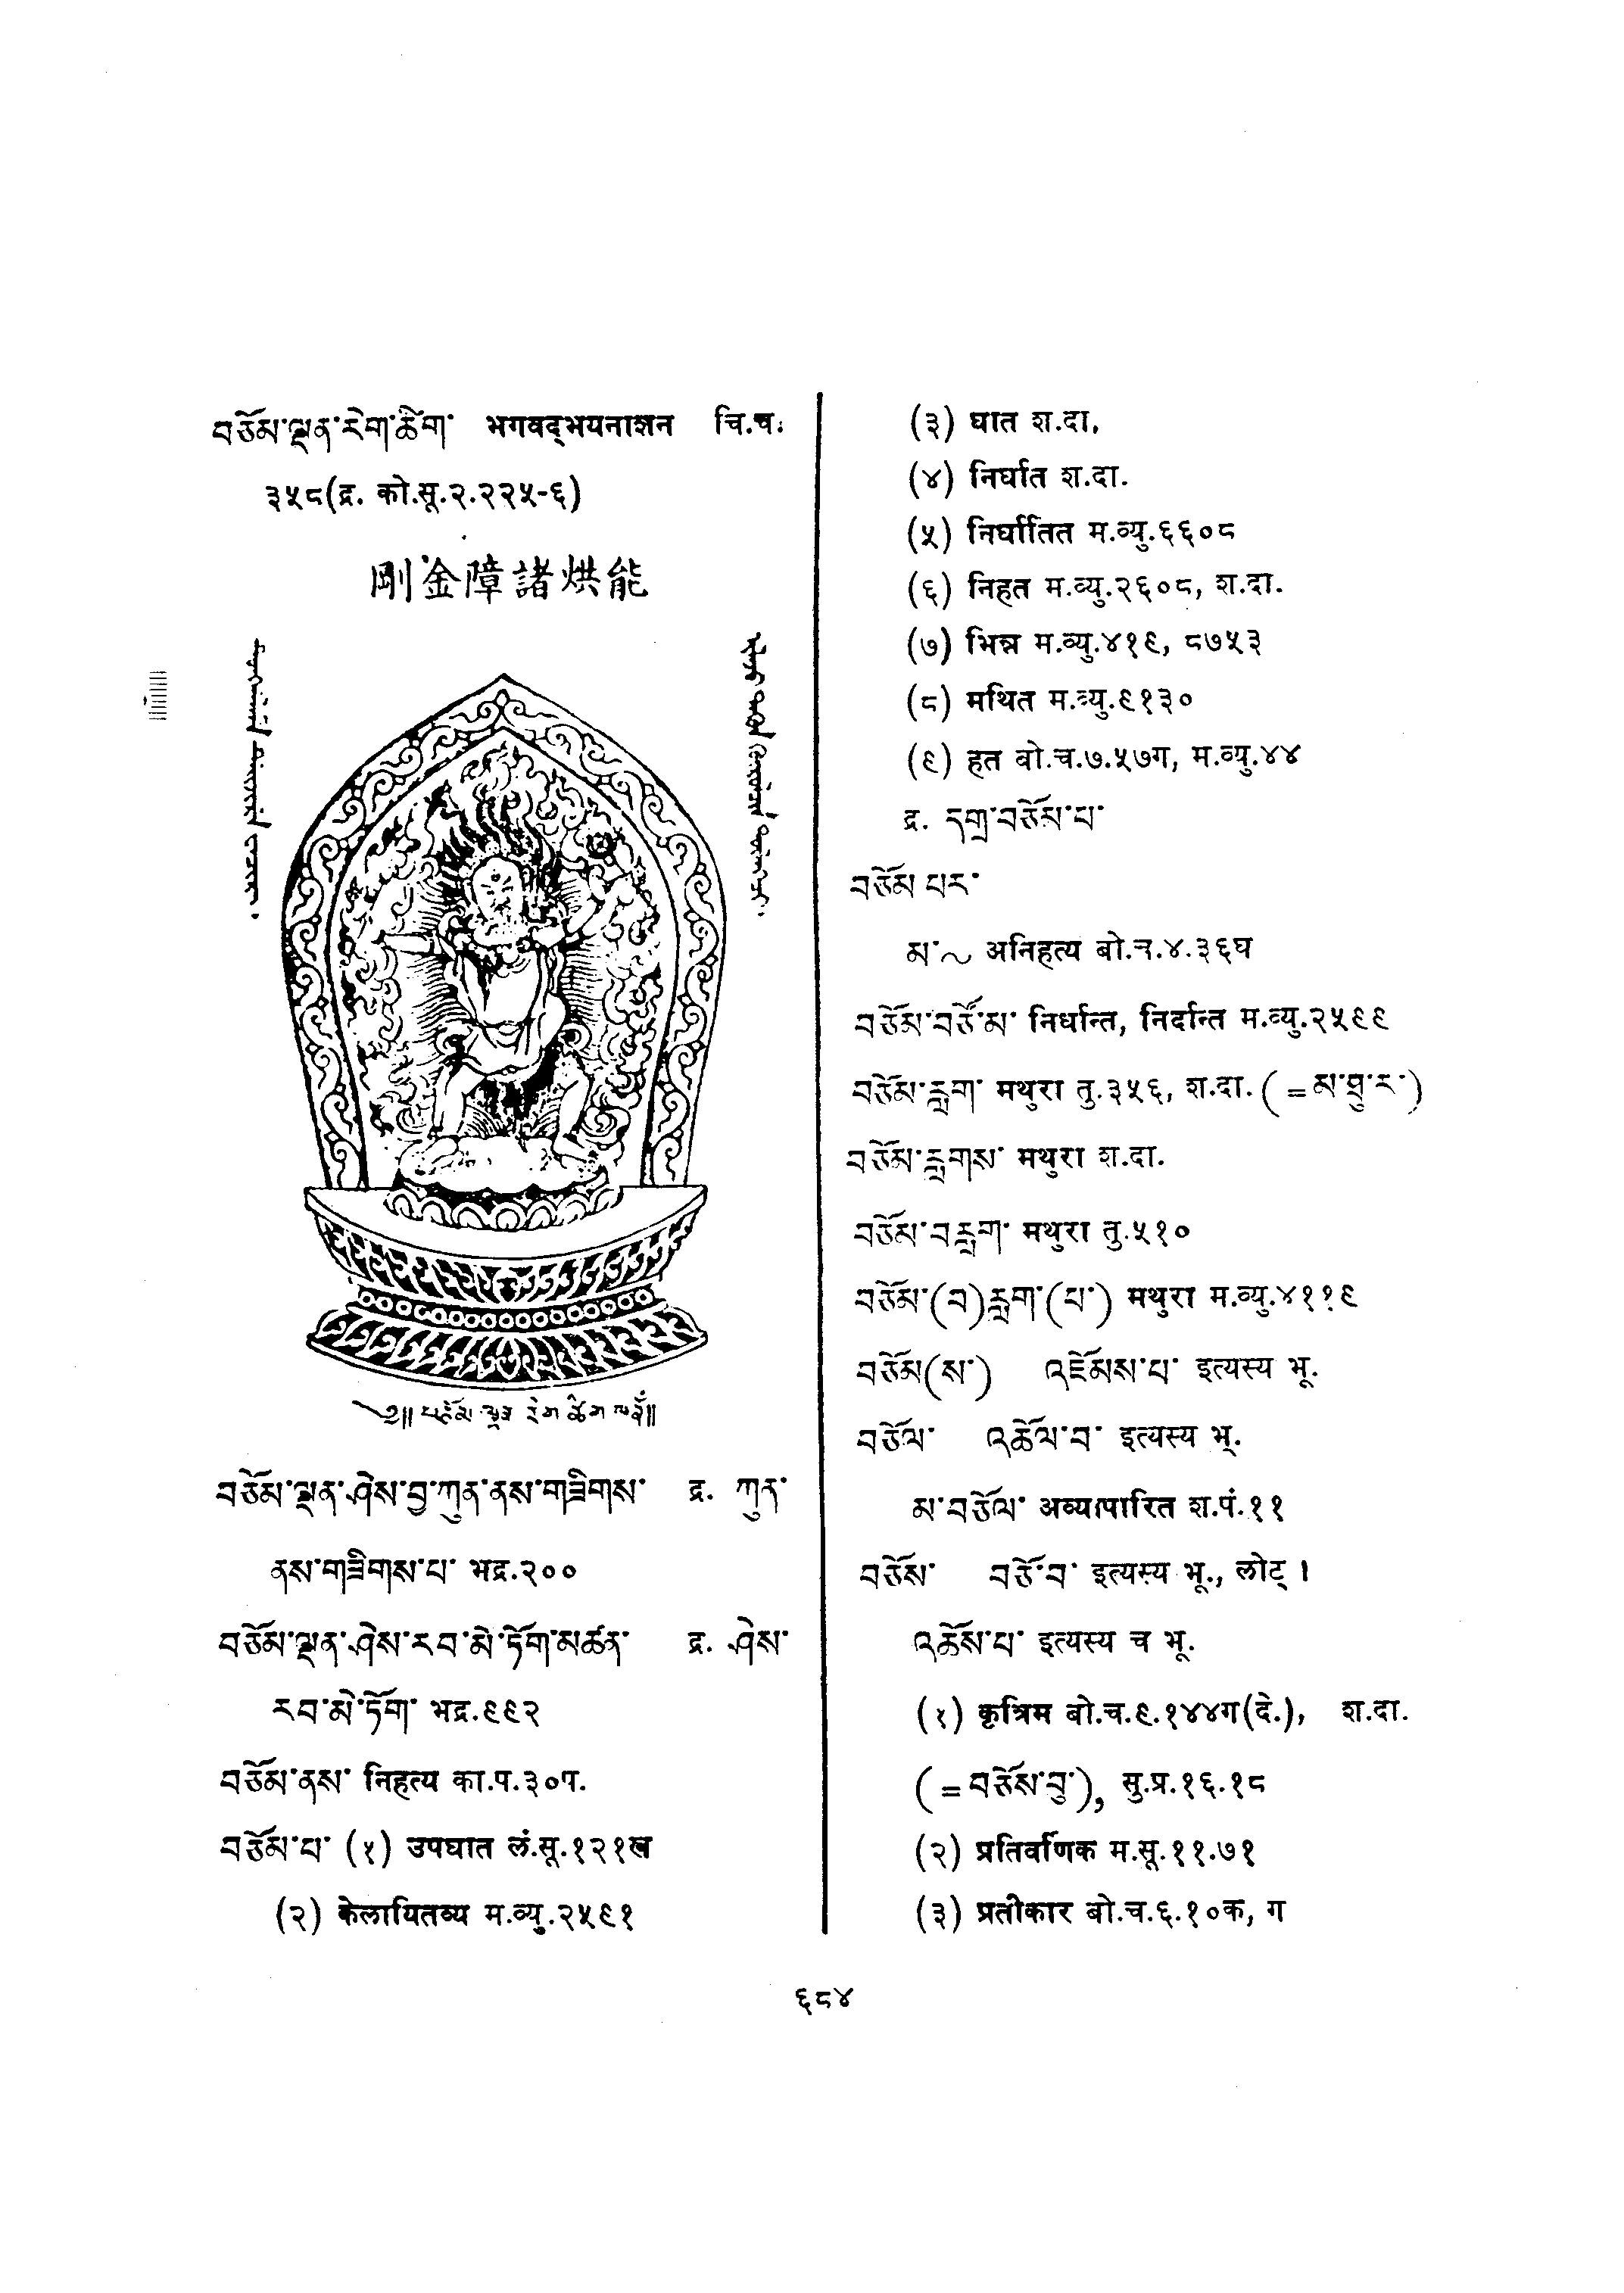 བཅོམ་ལྡན་རེག་ཚིག་ भगवद्भयनाशन चि.च.
३५८(द्र. को.सू.२.२२५-६)
剛金障諸烘能
བཅོམ་ལྡན་ཤེས་བྱ་ཀུན་ནས་གཟིགས་ द्र. ཀུན་
ནས་གཟིགས་པ་ भद्र.२००
བཅོམ་ལྡན་ཤེས་རབ་མེ་ཏོག་མཚན་ द्र. ཤེས་
རབ་མེ་ཏོག་ भद्र.९९२
བཅོམ་ནས་ निहत्य का.प.३०प.
བཅོམ་པ་ (१) उपघात लं.सू.१२१ख
(२) केलायितव्य म.व्यु.२५९१
(३) घात श.दा.
(४) निर्घात श.दा.
(५) निर्घातित म.व्यु.६६०८
(६) निहत म.व्यु.२६०८, श.दा.
(७) भिन्न म.व्यु.४१९, ८७५३
(८) मथित म.व्यु.९१३०
(९) हत बो.च.७.५७ग, म.व्यु.४४
द्र. དགྲ་བཅོམ་པ་
བཅོམ པར་
མ་~ अनिहत्य बो.च.४.३६घ
བཅོམ་བཅོ་མ་ निर्धान्त, निर्दान्त म.व्यु.२५९९
བཅོམ་རླག་ मथुरा तु.३५६, श.दा. (=མ་ཐུ་ར་)
བཅོམ་རླགས་ मथुरा श.दा.
བཅོམ་བརླག་ मथुरा तु.५१०
བཅོམ་(བ)རླག་(པ་) मथुरा म.व्यु.४११९
བཅོམ(ས་) འཇོམས་པ་ इत्यस्य भू.
བཅོལ་ འཆོལ་བ་ इत्यस्य भू.
མ་བཅོལ་ अव्यापारित श.पं.११
བཅོས་ བཅོ་བ་ इत्यस्य भू., लोट् ।
འཆོས་པ་ इत्यस्य च भू.
(१) कृत्रिम बो.च.९.१४४ग(दे.), श.दा.
(=བཅོས་བུ་), सु.प्र.१६.१८
(२) प्रतिवर्णिक म.सू.११.७१
(३) प्रतीकार बो.च.६.१०क, ग
६८४